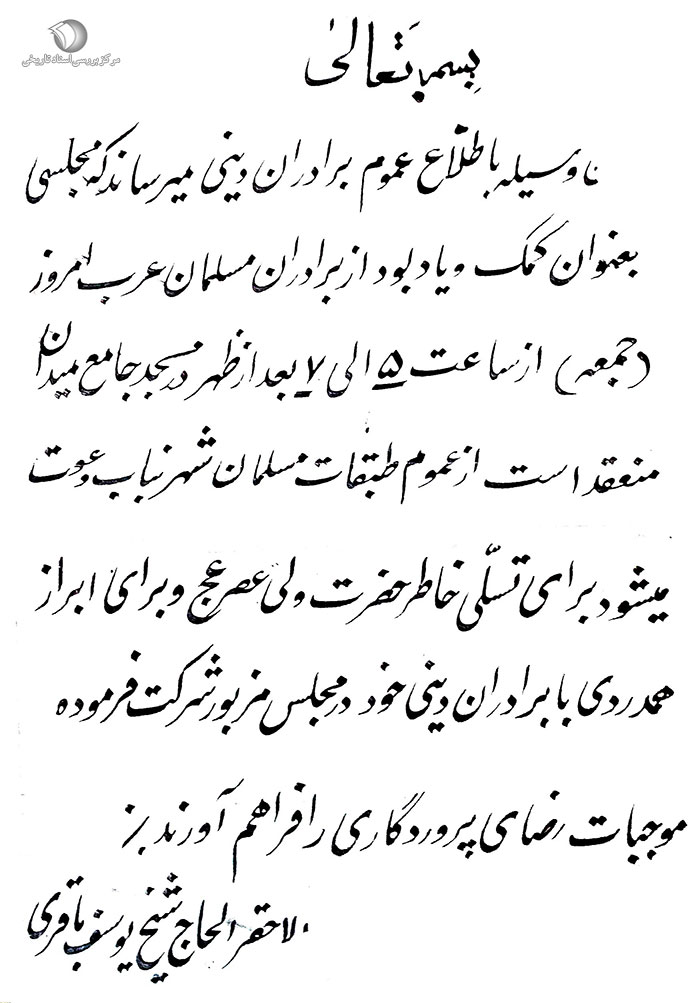 مرکز بررسی اسناد تاریخی
بسمه تعالی
با وسیله باطلاع عموم برادران دینی میرساند که مجلسی
بعنوان کمک و یادبود از برادران مسلمان عرب امروز
(جمعه) از ساعت ۵ الی ۷ بعد از ظهر در مسجد جامع میدان
منعقد است از عموم طبقات مسلمان شهر دعوت
میشود برای تسلّی خاطر حضرت ولی عصر عج و برای ابراز
همدردی با برادران دینی خود در مجلس مزبور شرکت فرموده
موجبات رضای پروردگاری را فراهم آورند
الاحقر الحاج شیخ یوسف باقری